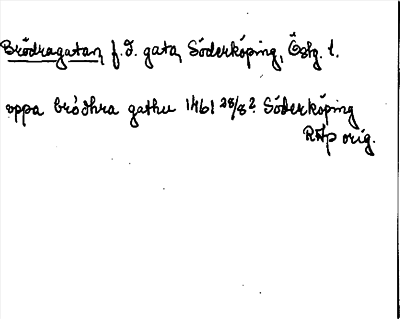 Brödragatan, f. d. gata, Söderköping, Östg. l.
oppa brödhra gathu 1461 28/8? Söderköping
RAp orig.